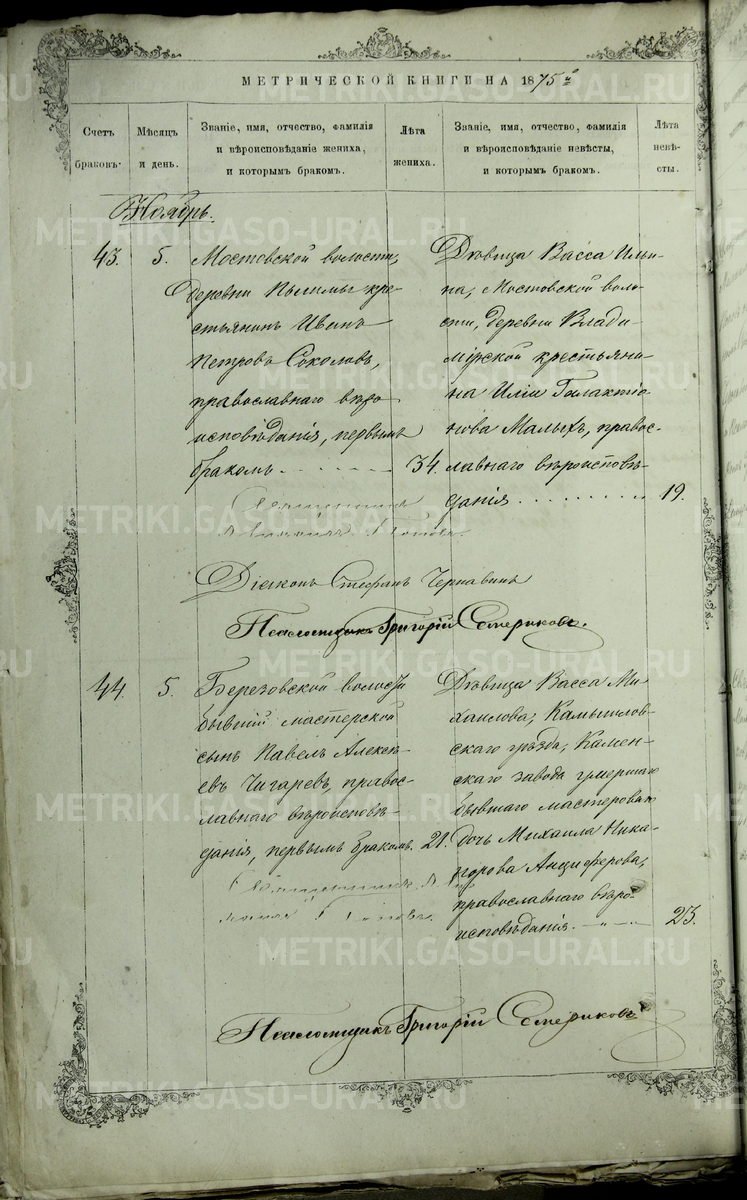 МЕТРИЧЕСКОЙ КНИГИ НА 1875й
Счетъ
браковъ.
Мѣсяцъ
и день.
Званіе, имя, отчество, фамилія
и вѣроисповѣданіе жениха,
и которымъ бракомъ.
Лѣта
жениха.
Званіе, имя, отчество, фамилія
и вѣроисповѣданіе невѣсты,
и которымъ бракомъ.
Лѣта
невѣ-
сты.
Ноябрь.
43.
5.
Мостовской волости,
деревни Пышмы кре-
стьянинъ Иванъ
Петровъ Соколовъ,
православнаго вѣро
исповѣданія, первымъ
бракомъ
34.
Дѣвица Васса Ильи-
на, Мостовской воло-
сти, деревни Влади-
мірской крестьяни-
на Иліи Галактіо-
нова Малыхъ, правос-
лавнаго вѣроисповѣ-
данія
19.
Священникъ
Поповъ.
Діаконъ Стефанъ Чернавинъ
Псаломщикъ Григорій Семериковъ.
44.
5.
Березовской волости
бывшій мастерской
сынъ Павелъ Алексѣ-
евъ Чигаревъ, правос-
лавнаго вѣроисповѣ-
данія, первымъ бракомъ.
21.
Дѣвица Васса Ми-
хаилова, Камышлов-
скаго уѣзда, Камен-
скаго завода умершаго
бывшаго мастероваго
дочь Михаила Ника-
норова Анциферова,
православнаго вѣро-
исповѣданія.
23.
Священникъ
Поповъ.
Псаломщикъ Григорій Семериковъ
METRIKI.GASO-URAL.RU